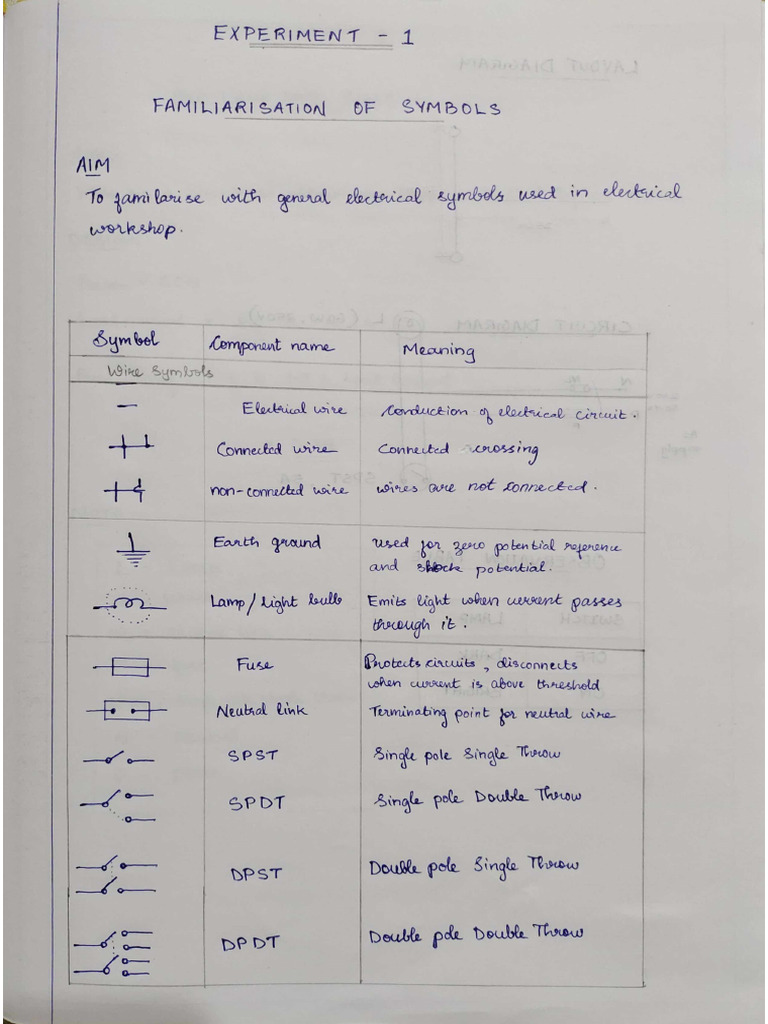 EXPERIMENT - 1
FAMILIARISATION OF SYMBOLS
AIM
To familarise with general electrical symbols used in electrical
workshop.
Symbol Component name Meaning
Wire Symbols
Electrical wire Conduction of electrical circuit.
Connected wire Connected crossing
non-connected wire wires are not connected.
Earth ground used for zero potential reference
and shock potential.
Lamp/Light bulb Emits light when current passes
through it.
Fuse Protects circuits, disconnects
when current is above threshold
Neutral link Terminating point for neutral wire
SPST Single pole Single Throw
SPDT Single pole Double Throw
DPST Double pole Single Throw
DPDT Double pole Double Throw